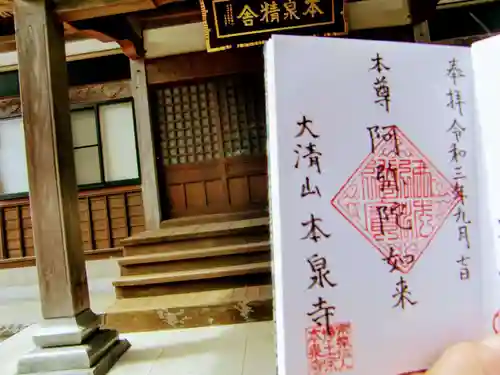 本泉精舎
奉拝 令和三年九月七日
本尊 阿弥陀如来
大清山本泉寺